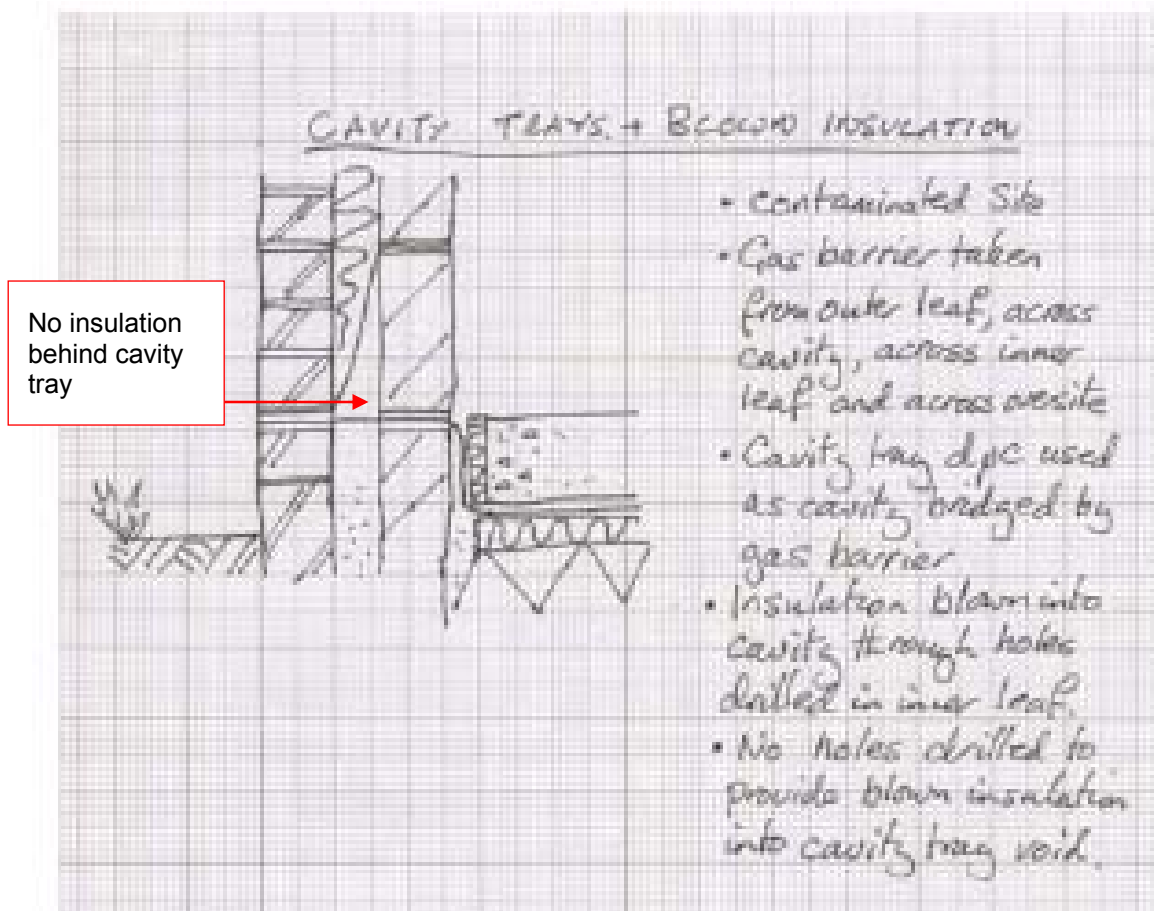 CAVITY TRAYS + BLOWN INSULATION
No insulation
behind cavity
tray
• contaminated Site
• Gas barrier taken
from outer leaf, across
cavity, across inner
leaf and across oversite
• Cavity tray dpc used
as cavity bridged by
gas barrier
• Insulation blown into
cavity through holes
drilled in inner leaf.
• No holes drilled to
provide blown insulation
into cavity tray void.